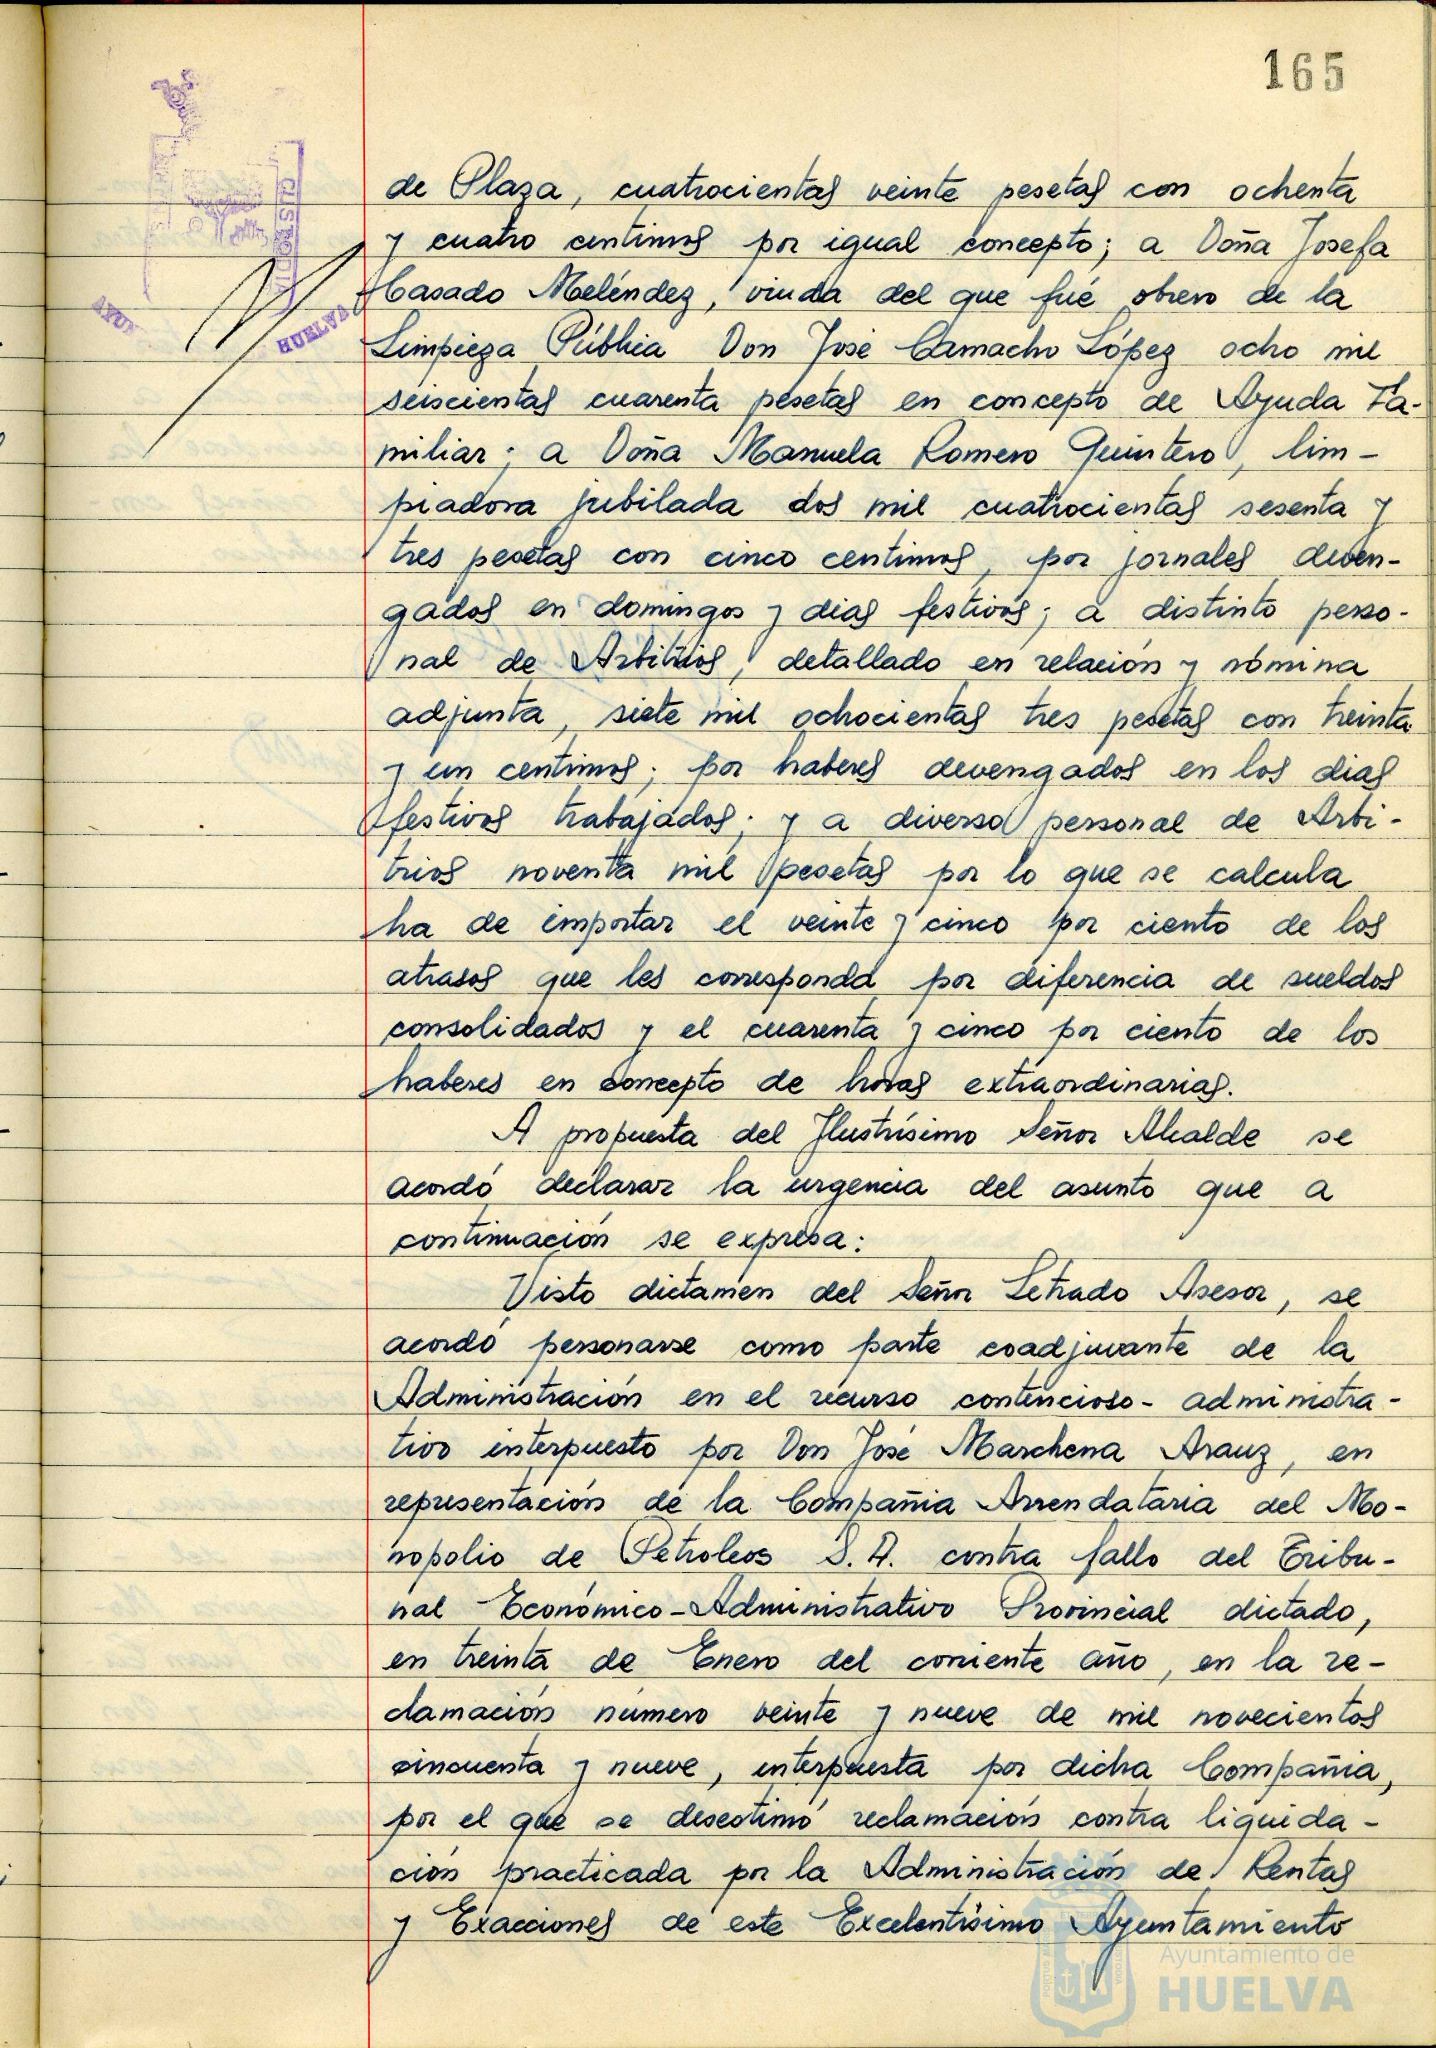 165
CUSTODIA
HUELVA
de Plaza, cuatrocientas veinte pesetas con ochenta
y cuatro centimos por igual concepto; a Doña Josefa
Casado Meléndez, viuda del que fué obrero de la
Limpieza Pública Don José Camacho López ocho mil
seiscientas cuarenta pesetas en concepto de Ayuda Fa-
miliar; a Doña Manuela Romero Quintero, lim-
piadora jubilada dos mil cuatrocientas sesenta y
tres pesetas con cinco centimos, por jornales deven-
gados en domingos y dias festivos; a distinto perso-
nal de Arbitrios, detallado en relación y nómina
adjunta, siete mil ochocientas tres pesetas con treinta
y un centimos; por haberes devengados en los dias
festivos trabajados; y a diverso personal de Arbi-
trios noventa mil pesetas por lo que se calcula
ha de importar el veinte y cinco por ciento de los
atrasos que les corresponda por diferencia de sueldos
consolidados y el cuarenta y cinco por ciento de los
haberes en concepto de horas extraordinarias.
A propuesta del Ilustrísimo Señor Alcalde se
acordó declarar la urgencia del asunto que a
continuación se expresa:
Visto dictamen del Señor Letrado Asesor, se
acordó personarse como parte coadjuvante de la
Administración en el recurso contencioso-administra-
tivo interpuesto por Don José Marchena Arauz, en
representación de la Compañia Arrendataria del Mo-
nopolio de Petroleos S.A. contra fallo del Tribu-
nal Económico-Administrativo Provincial dictado,
en treinta de Enero del corriente año, en la re-
clamación número veinte y nueve de mil novecientos
cincuenta y nueve, interpuesta por dicha Compañia,
por el que se desestimó reclamación contra liquida-
ción practicada por la Administración de Rentas
y Exacciones de este Excelentísimo Ayuntamiento
Ayuntamiento de
HUELVA